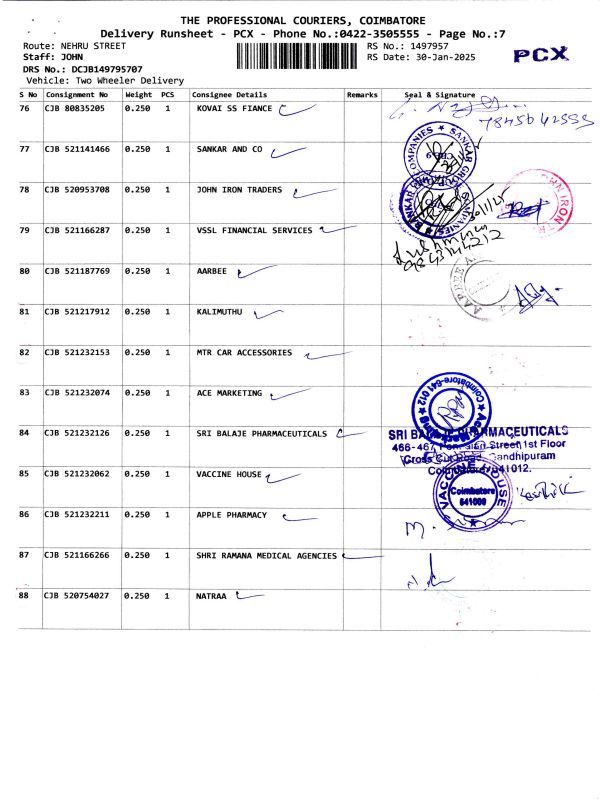 THE PROFESSIONAL COURIERS, COIMBATORE
Delivery Runsheet - PCX - Phone No.:0422-3505555 - Page No.:7
Route: NEHRU STREET RS No.: 1497957
Staff: JOHN RS Date: 30-Jan-2025
PCX
DRS No.: DCJB149795707
Vehicle: Two Wheeler Delivery
S No Consignment No Weight PCS Consignee Details Remarks Seal & Signature
76 CJB 80835205 0.250 1 KOVAI SS FIANCE
7845642555
77 CJB 521141466 0.250 1 SANKAR AND CO
SANKAR GROUP COMPANIES
78 CJB 520953708 0.250 1 JOHN IRON TRADERS
79 CJB 521166287 0.250 1 VSSL FINANCIAL SERVICES
9843144212
80 CJB 521187769 0.250 1 AARBEE
81 CJB 521217912 0.250 1 KALIMUTHU
82 CJB 521232153 0.250 1 MTR CAR ACCESSORIES
83 CJB 521232074 0.250 1 ACE MARKETING
Ace Marketing Coimbatore-641 012
84 CJB 521232126 0.250 1 SRI BALAJE PHARMACEUTICALS
SRI BALAJE PHARMACEUTICALS
466-467 Street, 1st Floor
Cross Cut Road, Gandhipuram
Coimbatore-641012.
85 CJB 521232062 0.250 1 VACCINE HOUSE
VACCINE HOUSE
Coimbatore
86 CJB 521232211 0.250 1 APPLE PHARMACY
87 CJB 521166266 0.250 1 SHRI RAMANA MEDICAL AGENCIES
88 CJB 520754027 0.250 1 NATRAA